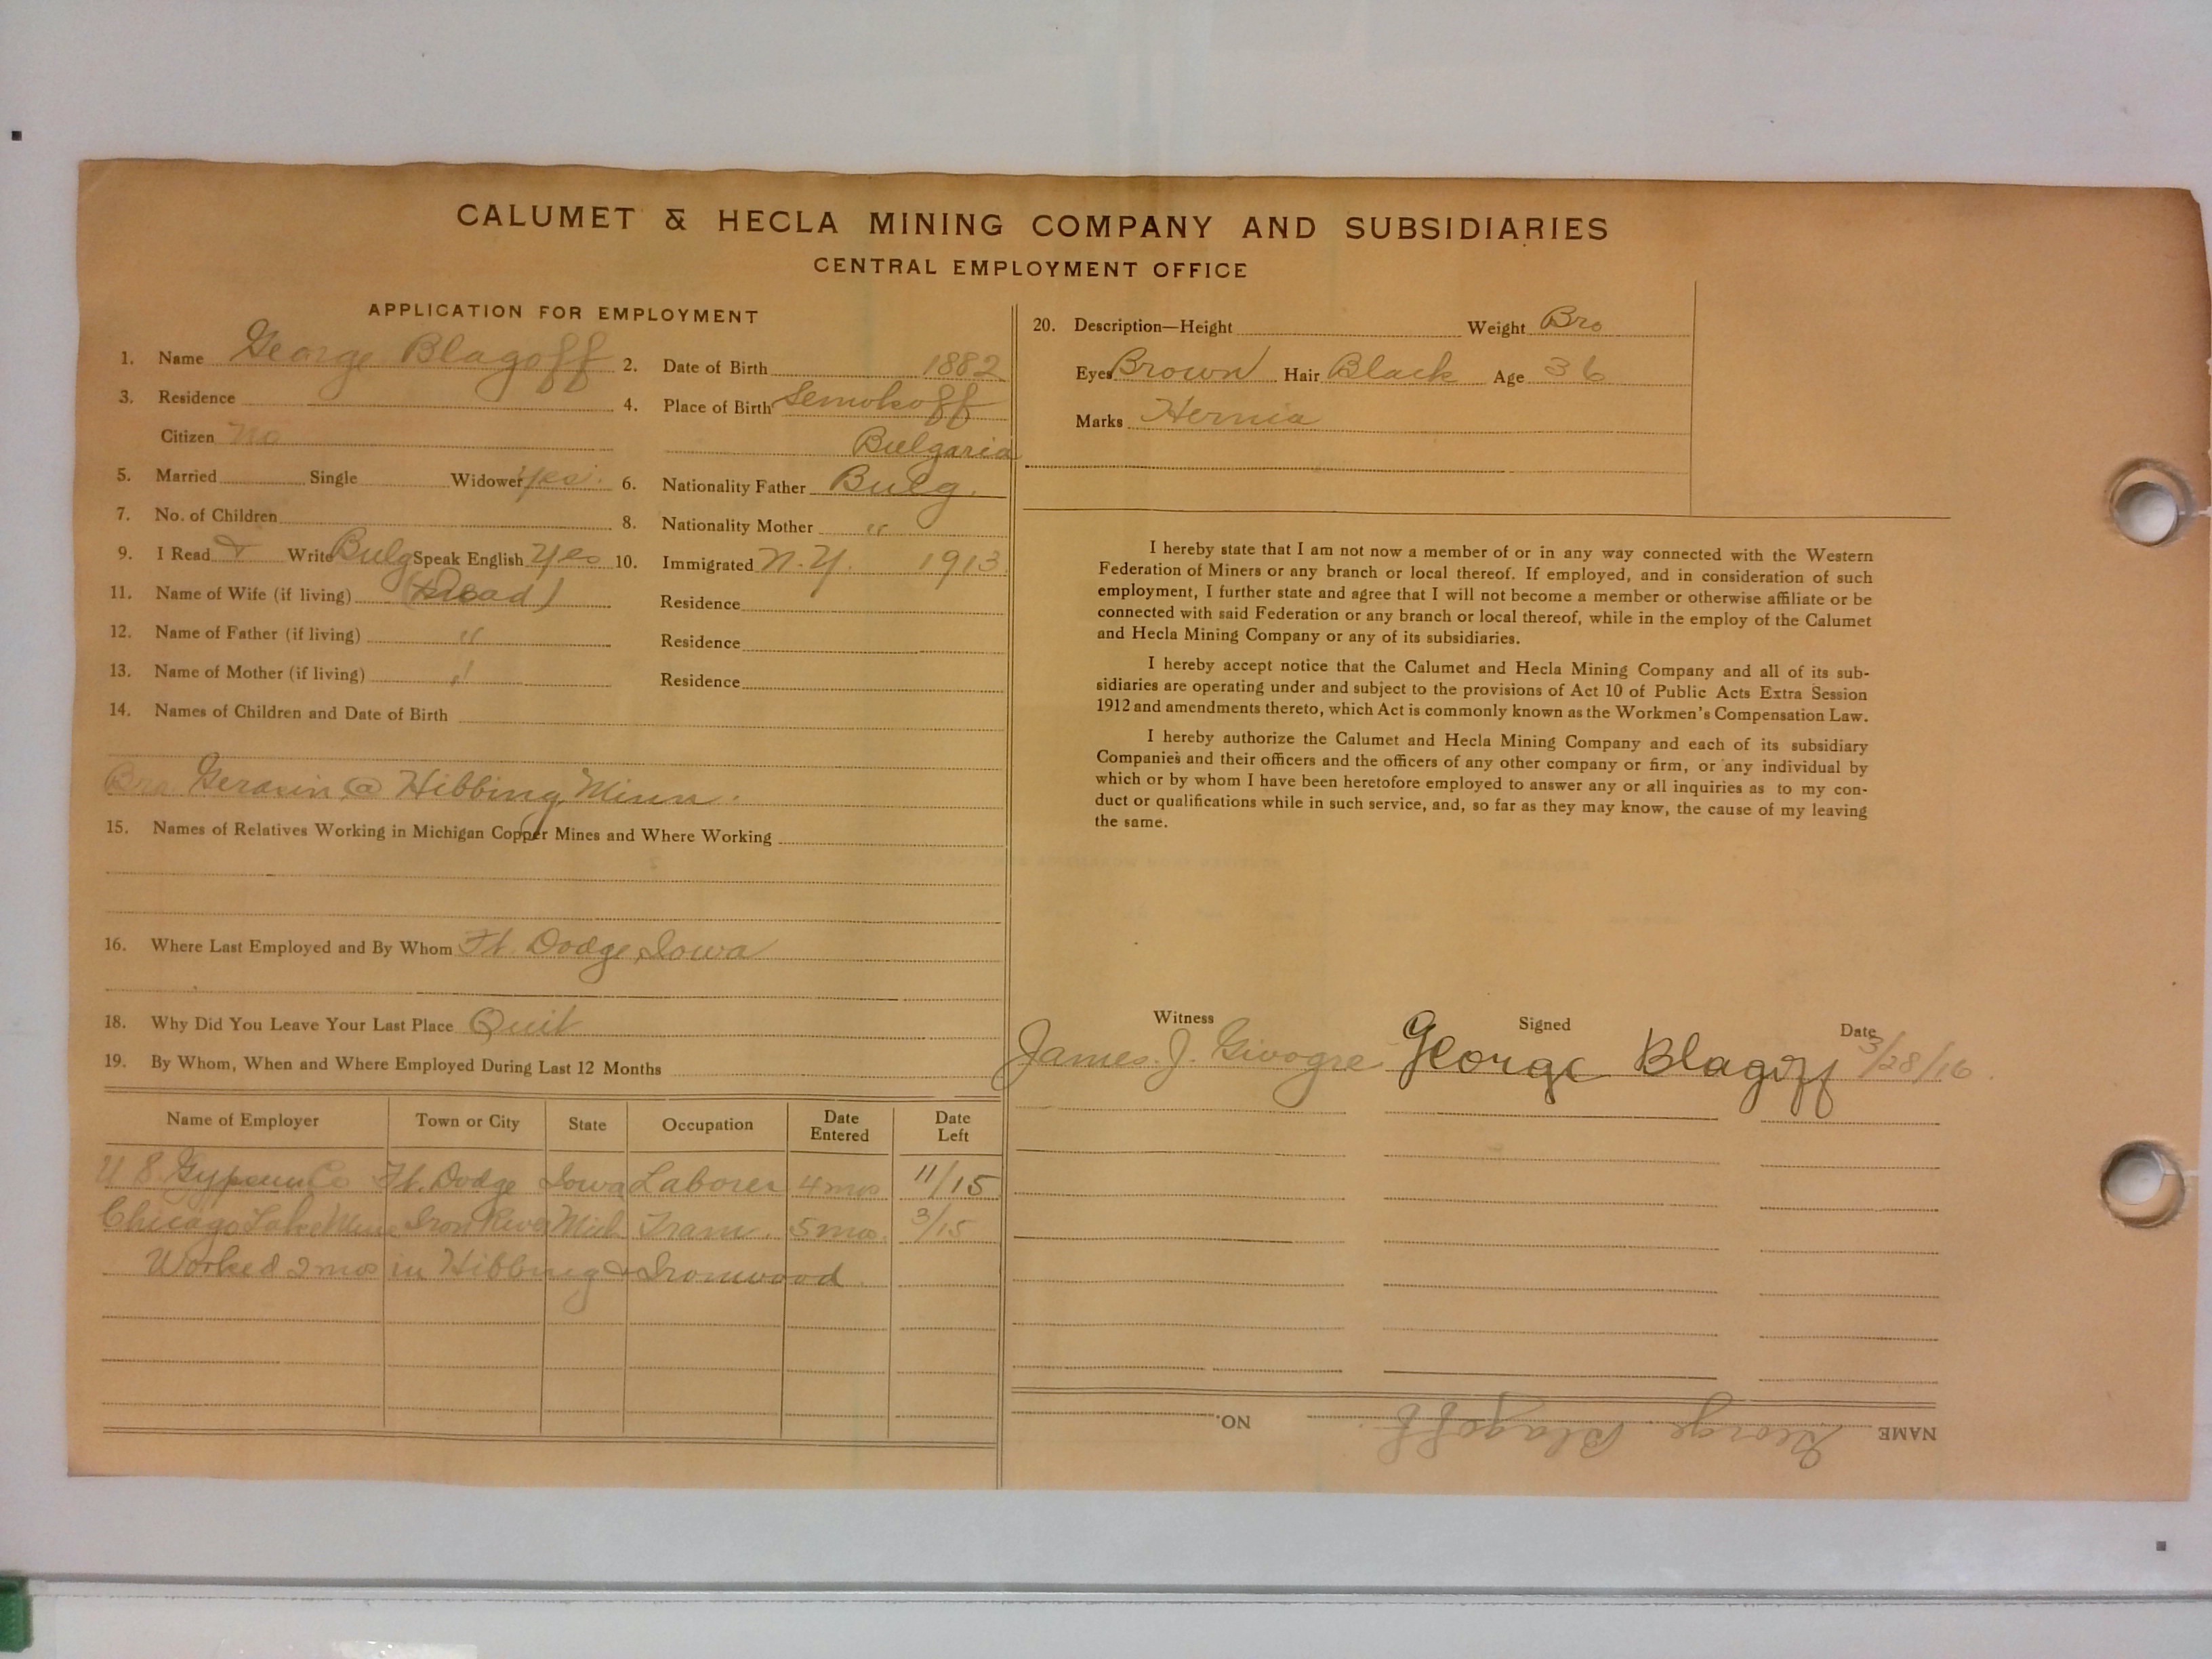 CALUMET & HECLA MINING COMPANY AND SUBSIDIARIES
CENTRAL EMPLOYMENT OFFICE
APPLICATION FOR EMPLOYMENT
1. Name George Blagoff 2. Date of Birth 1882
3. Residence 4. Place of Birth Semokoff
Citizen No Bulgaria
5. Married Single Widower Yes. 6. Nationality Father Bulg.
7. No. of Children 8. Nationality Mother "
9. I Read & Write Bulg Speak English Yes 10. Immigrated N.Y. 1913
11. Name of Wife (if living) (Dead) Residence
12. Name of Father (if living) " Residence
13. Name of Mother (if living) " Residence
14. Names of Children and Date of Birth
Bro Gerasin @ Hibbing Minn.
15. Names of Relatives Working in Michigan Copper Mines and Where Working
16. Where Last Employed and By Whom Ft. Dodge, Iowa
18. Why Did You Leave Your Last Place Quit
19. By Whom, When and Where Employed During Last 12 Months
Name of Employer Town or City State Occupation Date Entered Date Left
U S. Gypsum Co Ft. Dodge Iowa Laborer 4 mos 11/15
Chicago Lake Mine Iron River Mich Tram. 5 mos. 3/15
Worked 2 mos in Hibbing & Ironwood
20. Description—Height Weight Bro
Eyes Brown Hair Black Age 36
Marks Hernia
I hereby state that I am not now a member of or in any way connected with the Western
Federation of Miners or any branch or local thereof. If employed, and in consideration of such
employment, I further state and agree that I will not become a member or otherwise affiliate or be
connected with said Federation or any branch or local thereof, while in the employ of the Calumet
and Hecla Mining Company or any of its subsidiaries.
I hereby accept notice that the Calumet and Hecla Mining Company and all of its sub-
sidiaries are operating under and subject to the provisions of Act 10 of Public Acts Extra Session
1912 and amendments thereto, which Act is commonly known as the Workmen's Compensation Law.
I hereby authorize the Calumet and Hecla Mining Company and each of its subsidiary
Companies and their officers and the officers of any other company or firm, or any individual by
which or by whom I have been heretofore employed to answer any or all inquiries as to my con-
duct or qualifications while in such service, and, so far as they may know, the cause of my leaving
the same.
Witness Signed Date
James. J. Givogre George Blagoff 3/28/16
NAME George Blagoff. NO.